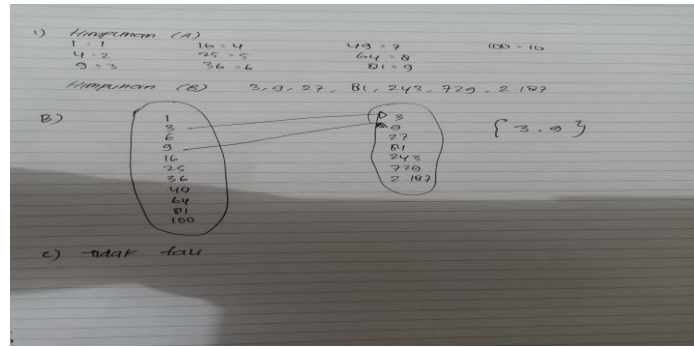 1) Himpunan (A)
1 = 1 16 = 4 49 = 7 100 = 10
4 = 2 25 = 5 64 = 8
9 = 3 36 = 6 81 = 9
Himpunan (B) 3, 9, 27, 81, 243, 729, 2.187
B)
1
3
6
9
16
25
36
49
64
81
100
3
9
27
81
243
729
2.187
{3, 9}
c) tidak tau